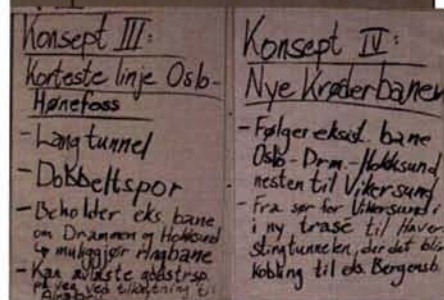 Konsept III:
Korteste linje Oslo-
Hønefoss
- Lang tunnel
- Dobbeltspor
- Beholder eks. bane
om Drammen og Hokksund
↳ muliggjør ringbane
- Kan avlaste godstrsp.
på veg ved tilknytning til
Konsept IV:
Nye Krøderbanen
- Følger eksist. bane
Oslo-Drm.-Hokksund,
nesten til Vikersund
- Fra sør for Vikersund,
i ny trasé til Haver-
stingtunnelen, der det blir
kobling til eks. Bergensb.